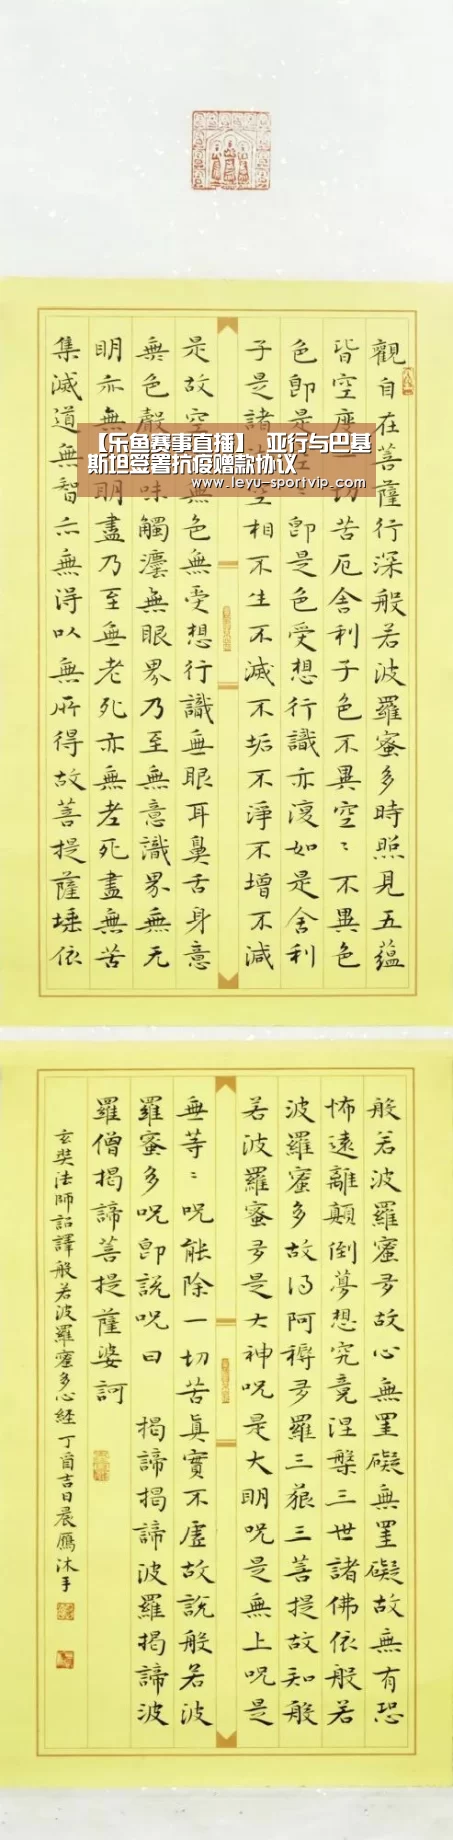 【乐鱼赛事直播】 亚行与巴基
斯坦签署抗疫赠款协议
www.leyu-sportvip.com
觀自在菩薩行深般若波羅蜜多時照見五蘊
皆空度一切苦厄舍利子色不異空〻不異色
色即是空〻即是色受想行識亦復如是舍利
子是諸法空相不生不滅不垢不淨不增不減
是故空中無色無受想行識無眼耳鼻舌身意
無色聲香味觸灋無眼界乃至無意識界無无
明亦無無明盡乃至無老死亦無老死盡無苦
集滅道無智亦無得以無所得故菩提薩埵依
般若波羅蜜多故心無罣礙無罣礙故無有恐
怖遠離顛倒夢想究竟涅槃三世諸佛依般若
波羅蜜多故得阿耨多羅三藐三菩提故知般
若波羅蜜多是大神咒是大明咒是無上咒是
無等〻咒能除一切苦真實不虛故說般若波
羅蜜多咒即說咒曰 揭諦揭諦波羅揭諦波
羅僧揭諦菩提薩婆訶
玄奘法師詔譯般若波羅蜜多心經 丁酉吉日晨鴈沐手